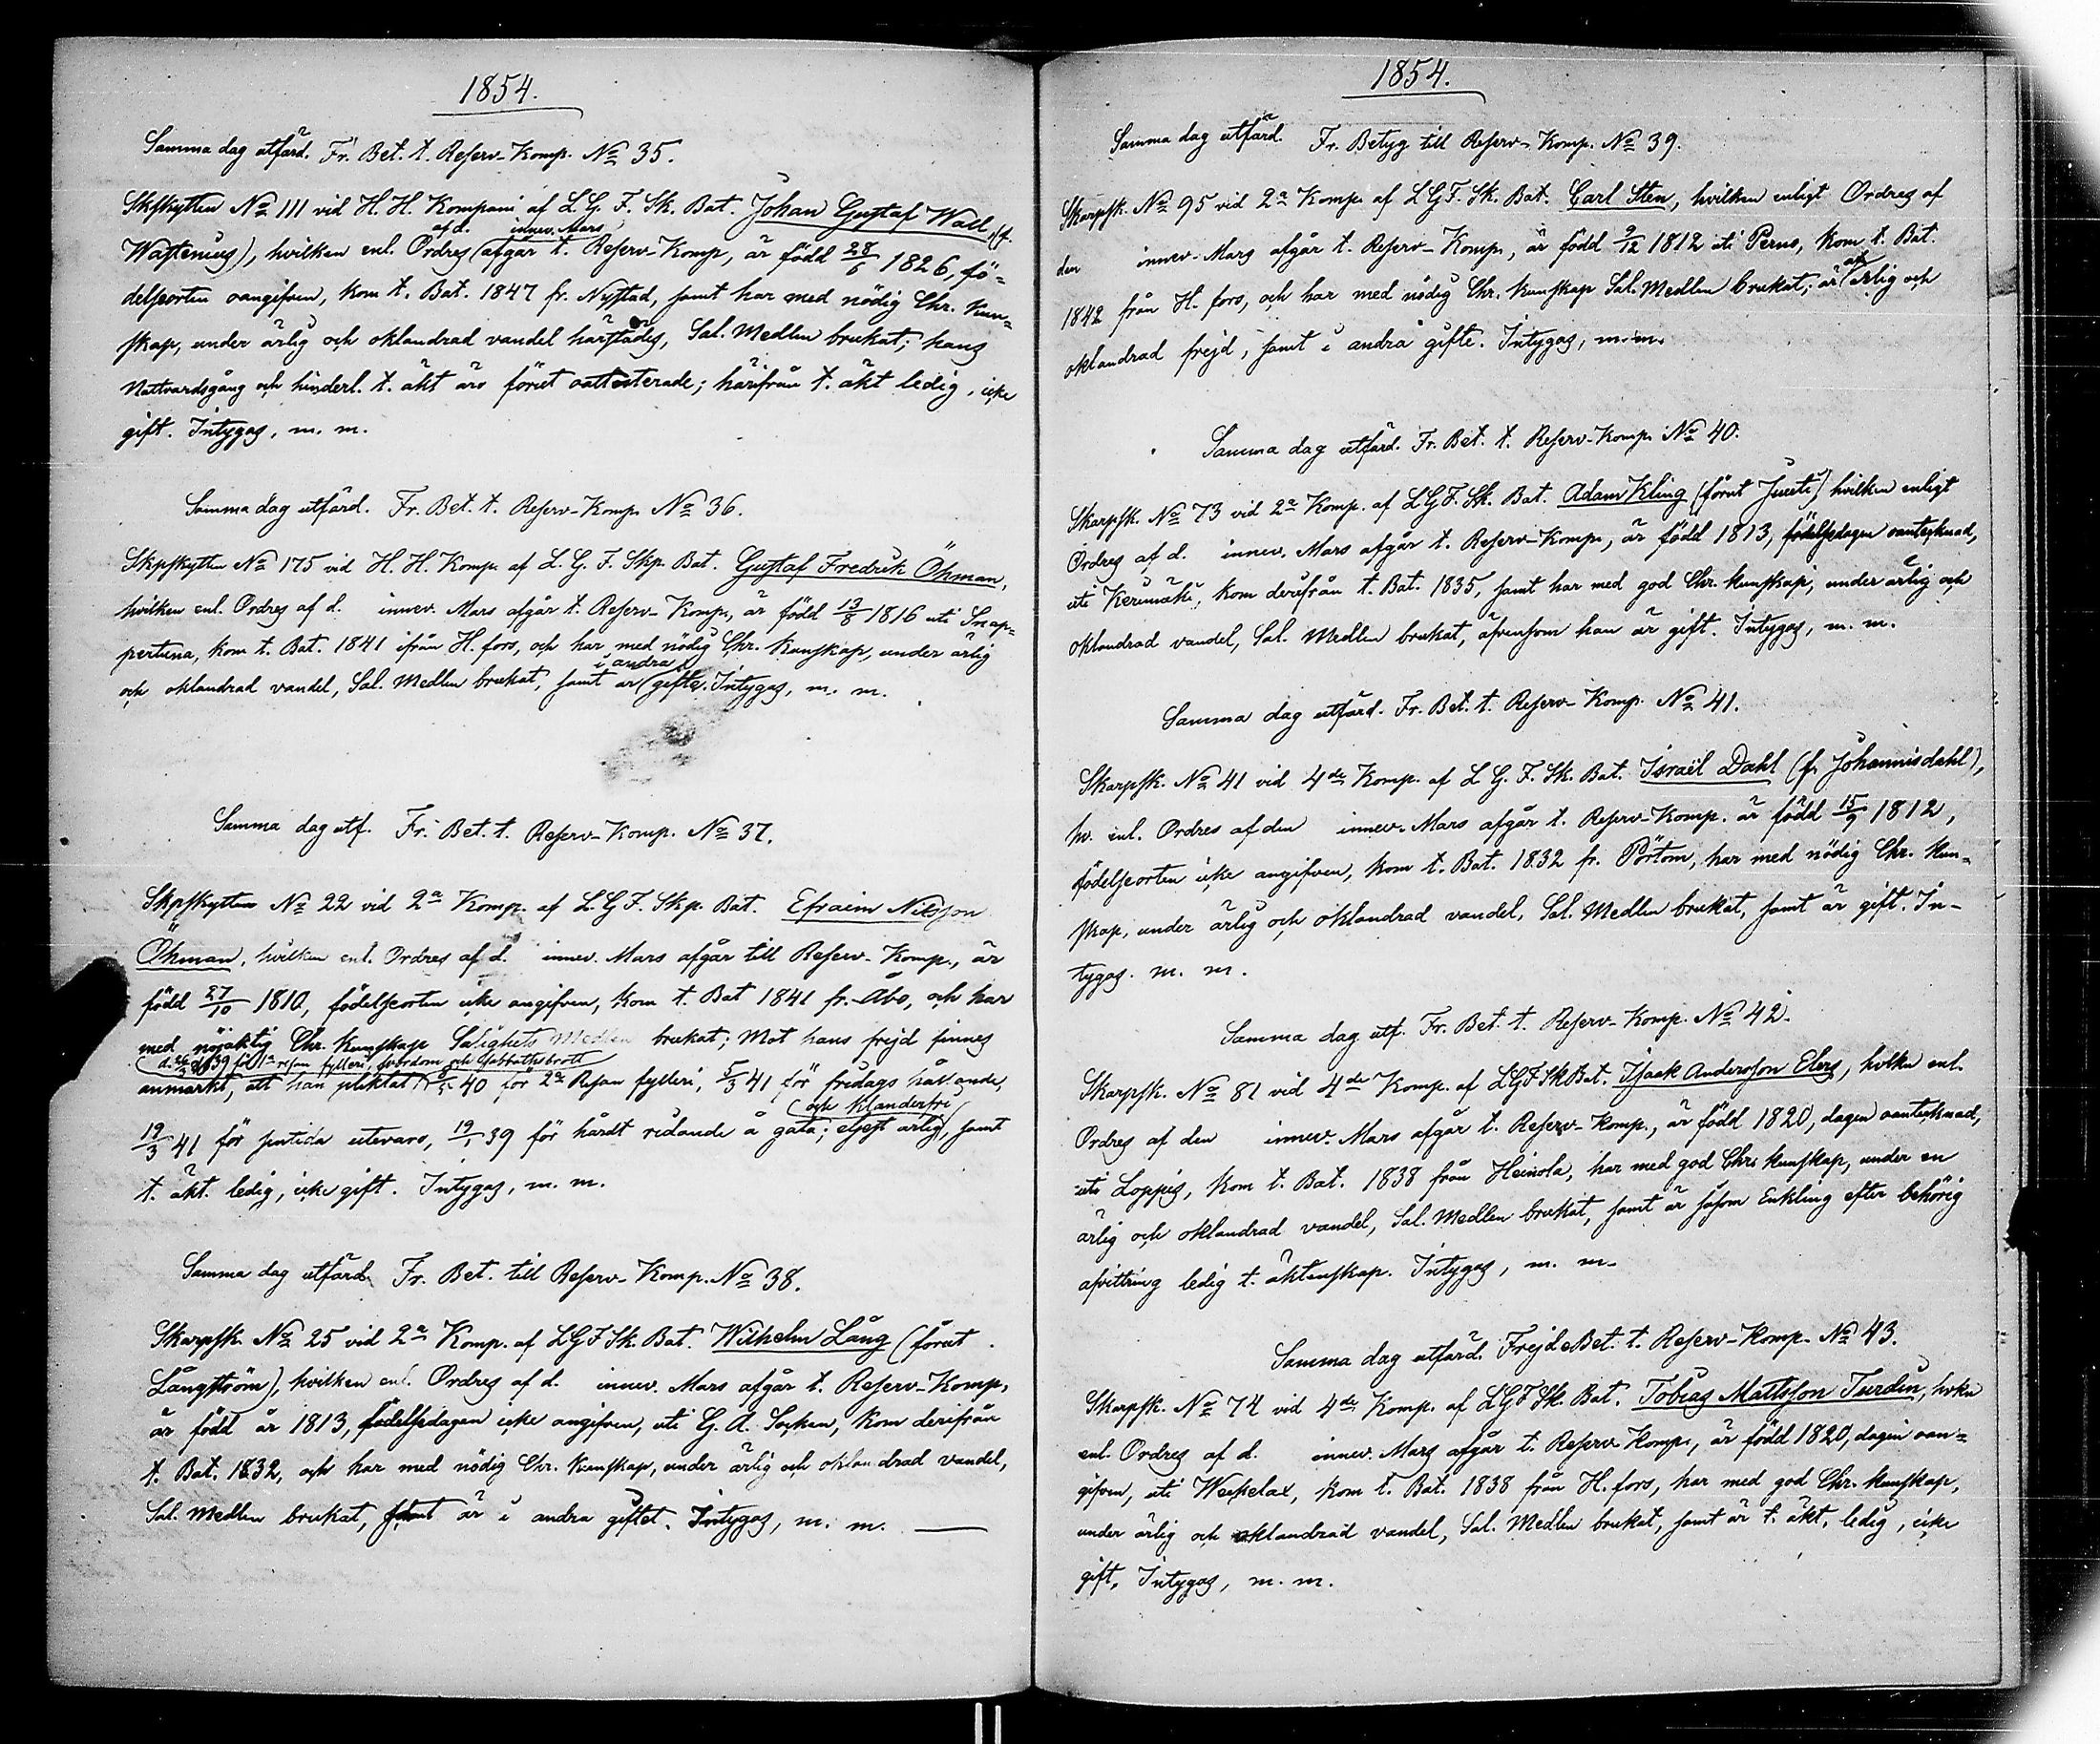 1854.
Samma dag utfärd. Fr. Bet. t. Reserv-Komp. No 35.
Skpskytten No 111 vid H. H. Kompani af L. G. F. Sk. Bat. Johan Gustaf Wall (f.
af d. innev. Mars
Wastenius), hvilken enl. Ordres afgår t. Reserv-Komp, är född 28/6 1826, fö-
delseorten oangifven, kom t. Bat. 1847 fr. Nystad, samt har med nödig Chr. kun-
skap, under ärlig och oklandrad vandel härstädes, Sal. Medlen brukat; hans
Nattvardsgång och hinderl. t. äkt äro förut oattesterade; härifrån t. äkt ledig, icke
gift. Intygas, m. m.
Samma dag utfärd. Fr. Bet. t. Reserv-Komp. No 36.
Skpskytten No 175 vid H. H. Komp. af L. G. F. Skp. Bat. Gustaf Fredrik Öhman,
hvilken enl. Ordres af d. innev. Mars afgår t. Reserv-Komp., är född 13/8 1816 uti Snap-
pertuna, kom t. Bat. 1841 ifrån H. fors, och har med nödig Chr. Kunskap, under ärlig
i andra
och oklandrad vandel, Sal. Medlen brukat, samt är gifte. Intygas, m. m.
Samma dag utf. Fr. Bet. t. Reserv-Komp. No 37.
Skpskytten No 22 vid 2a Komp. af L G F. Skp. Bat. Efraim Nilsson
Öhman, hvilken enl. Ordres af d. innev. Mars afgår till Reserv-Komp., är
född 27/10 1810, födelseorten icke angifven, kom t. Bat 1841 fr. Åbo, och har
med nöjaktig Chr. Kunskap Salighets Medlen brukat; Mot hans frejd finnes
39 för 1a resan fylleri, svordom och Sabbathsbrott
anmärkt, att han pliktat 40 för 2a Resan fylleri, 5/3 41 för fridags hållande,
och klanderfri
19/3 41 för nattida utevaro, 19/1 39 för hårdt ridande å gata; eljest ärlig, samt
t. äkt. ledig, icke gift. Intygas, m. m.
Samma dag utfärd. Fr. Bet. till Reserv-Komp. No 38.
Skarpsk. No 25 vid 2a Komp. af L G F Sk. Bat. Wilhelm Lång (förut
Långström), hvilken enl. Ordres af d. innev. Mars afgår t. Reserv-Komp,
är född år 1813, födelsedagen icke angifven, uti G. A. Socken, kom derifrån
t. Bat. 1832, och har med nödig Chr. kunskap, under ärlig och oklandrad vandel,
Sal. Medlen brukat, samt är i andra giftet. Intygas, m. m.
1854.
Samma dag utfärd. Fr. Betyg till Reserv-Komp. No 39.
Skarpsk. No 95 vid 2a Komp. af L G F. Sk. Bat. Carl Sten, hvilken enligt Ordres af
den innev. Mars afgår t. Reserv-Komp., är född 9/12 1812 uti Perno, kom t. Bat.
1842 från H. fors, och har med nödig Chr. kunskap Sal. Medlen brukat; är af ärlig och
oklandrad frejd, samt i andra gifte. Intygas, m. m.
Samma dag utfärd. Fr. Bet. t. Reserv-Komp. No 40.
Skarpsk. No 73 vid 2a Komp. af L G F. Sk. Bat. Adam Kling (förut Juuti) hvilken enligt
Ordres af d. innev. Mars afgår t. Reserv-Komp., är född 1813, födelsedagen oantecknad,
uti Kerimäki, kom derifrån t. Bat. 1835, samt har med god Chr. kunskap, under ärlig och
oklandrad vandel, Sal. Medlen brukat, äfvensom han är gift. Intygas, m. m.
Samma dag utfärd. Fr. Bet. t. Reserv-Komp. No 41.
Skarpsk. No 41 vid 4de Komp. af L. G. F. Sk. Bat. Israël Dahl (f. Johannisdahl),
hv. enl. Ordres af den innev. Mars afgår t. Reserv-Komp. är född 15/9 1812,
födelseorten icke angifven, kom t. Bat. 1832 fr. Pörtom, har med nödig Chr. kun-
skap, under ärlig och oklandrad vandel, Sal. Medlen brukat, samt är gift. In-
tygas. m. m.
Samma dag utf. Fr. Bet. t. Reserv-Komp. No 42.
Skarpsk. No 81 vid 4de Komp. af L G F Sk Bat. Isaak Andersson Elers, hvilken enl.
Ordres af den innev. Mars afgår t. Reserv-Komp., är född 1820, dagen oantecknad,
uti Loppis, kom t. Bat. 1838 från Heinola, har med god Chr. kunskap, under en
ärlig och oklandrad vandel, Sal. Medlen brukat, samt är såsom Enkling efter behörig
afvittring ledig t. äktenskap. Intygas, m. m.
Samma dag utfärd. FrejdeBet. t. Reserv-Komp. No 43.
Skarpsk. No 74 vid 4de Komp. af L G F Sk. Bat. Tobias Mattsson Turdin, hvken
enl. Ordres af d. innev. Mars afgår t. Reserv Komp., är född 1820, dagen oan-
gifven, uti Weckelax, kom t. Bat. 1838 från H. fors, har med god Chr. kunskap,
under ärlig och oklandrad vandel, Sal. Medlen brukat, samt är t. äkt. ledig, icke
gift, Intygas, m. m.